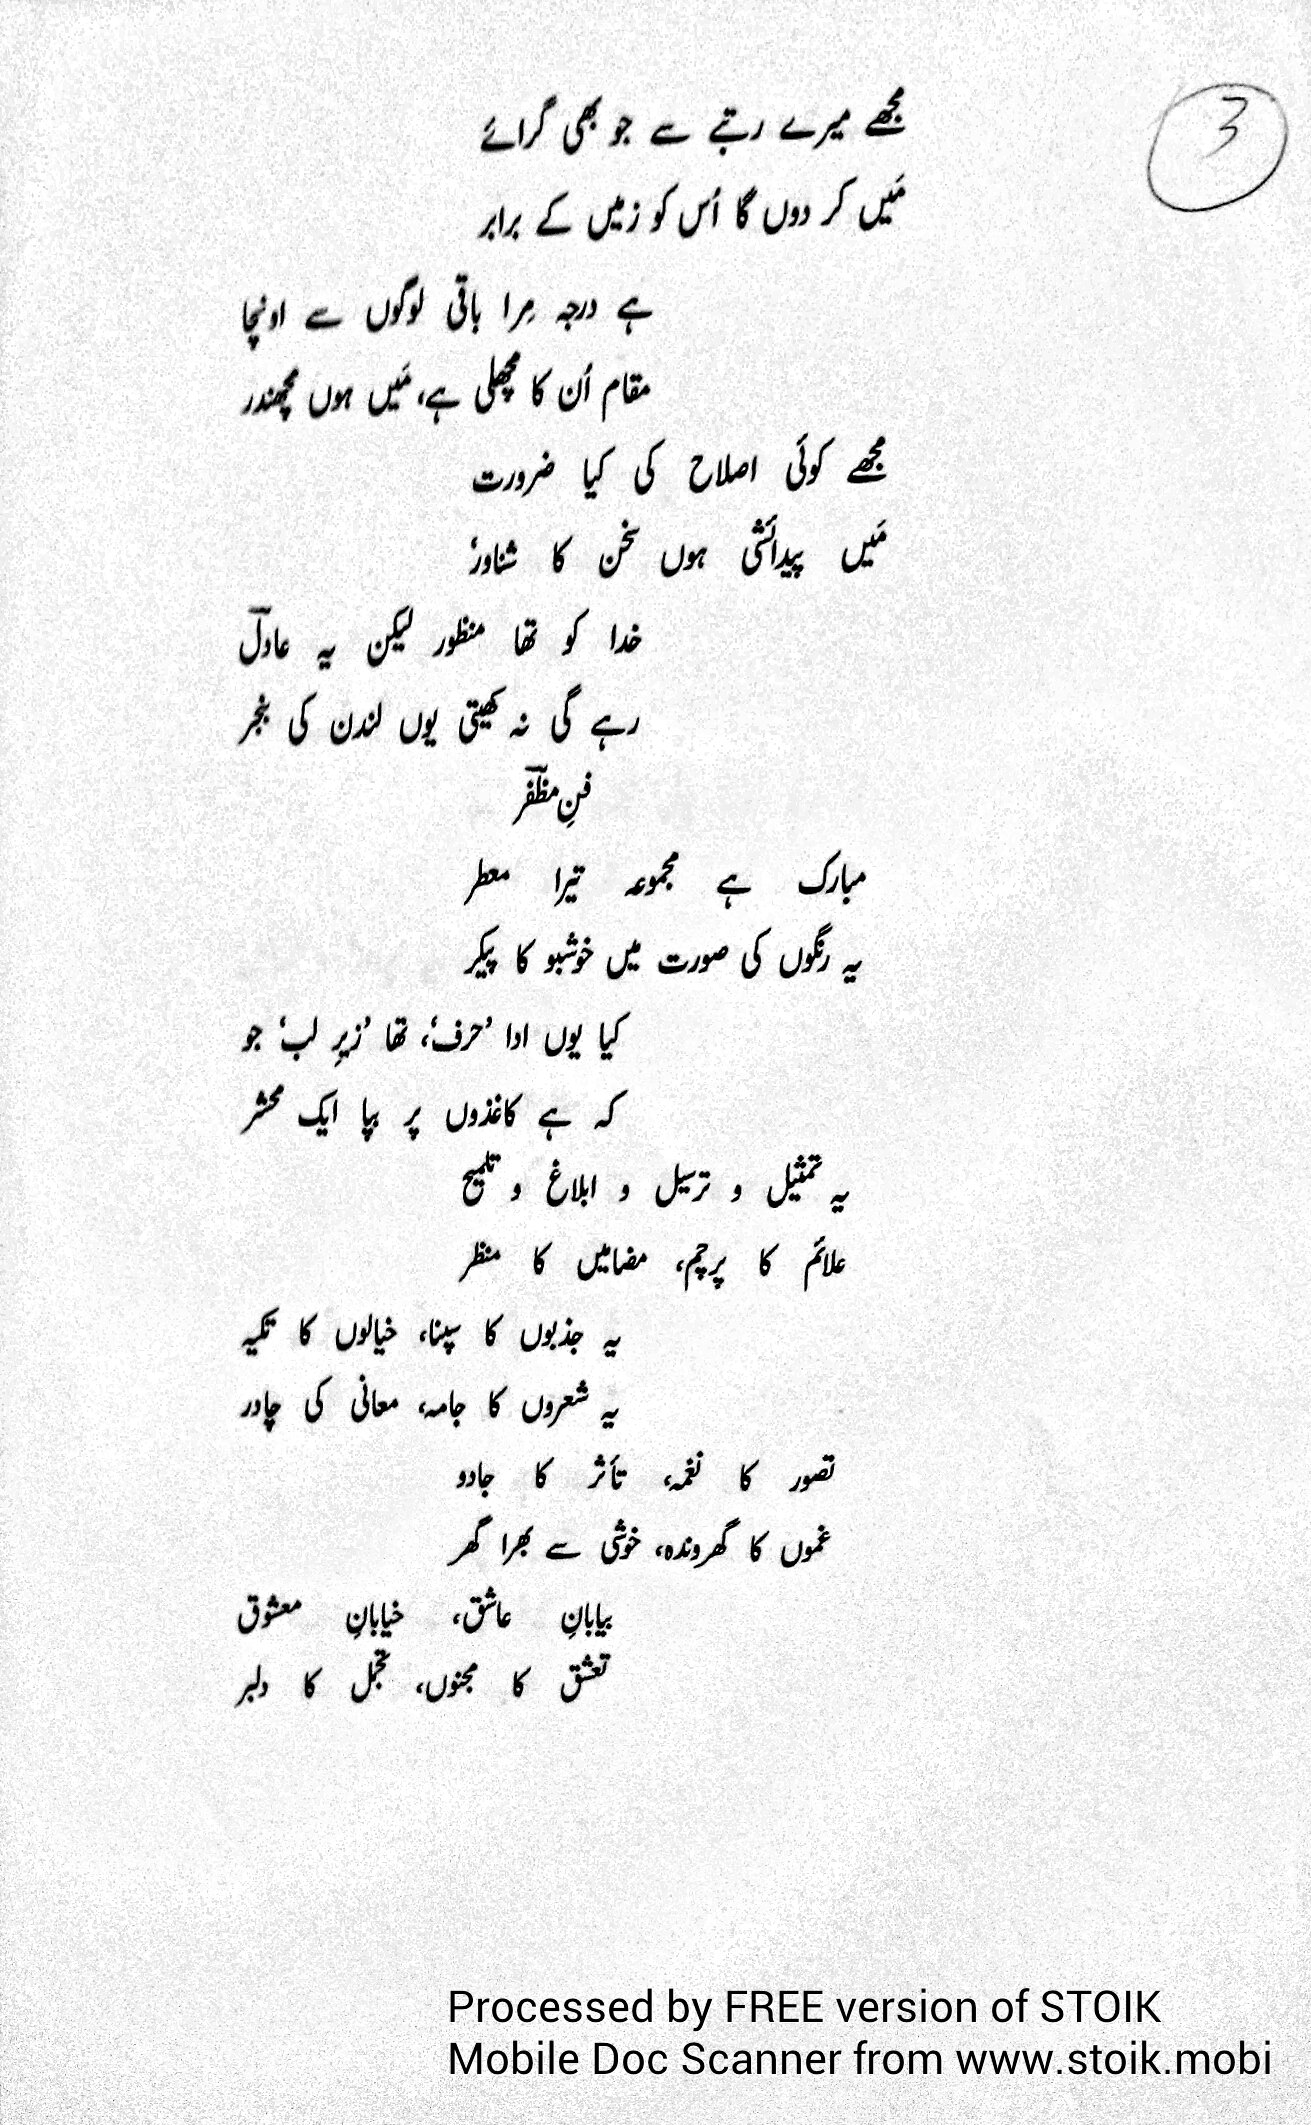 3
مجھے میرے رتبے سے جو بھی گرائے
مَیں کر دوں گا اُس کو زمیں کے برابر
ہے درجہ مِرا باقی لوگوں سے اونچا
مقام اُن کا مچھلی ہے، مَیں ہوں مچھندر
مجھے کوئی اصلاح کی کیا ضرورت
مَیں پیدائشی ہوں سخن کا شناور‘
خدا کو تھا منظور لیکن یہ عادلؔ
رہے گی نہ کھیتی یوں لندن کی بنجر
فنِ مظفرؔ
مبارک ہے مجموعہ تیرا معطر
یہ رنگوں کی صورت میں خوشبو کا پیکر
کیا یوں ادا ’حرف‘، تھا ’زیرِ لب‘ جو
کہ ہے کاغذوں پر بپا ایک محشر
یہ تمثیل و ترسیل و ابلاغ و تلمیح
علائم کا پرچم، مضامیں کا منظر
یہ جذبوں کا سپنا، خیالوں کا تکیہ
یہ شعروں کا جامہ، معانی کی چادر
تصور کا نغمہ، تأثر کا جادو
غموں کا گھروندہ، خوشی سے بھرا گھر
بیابانِ عاشق، خیابانِ معشوق
تعشق کا مجنوں، تجمل کا دلبر
Processed by FREE version of STOIK
Mobile Doc Scanner from www.stoik.mobi